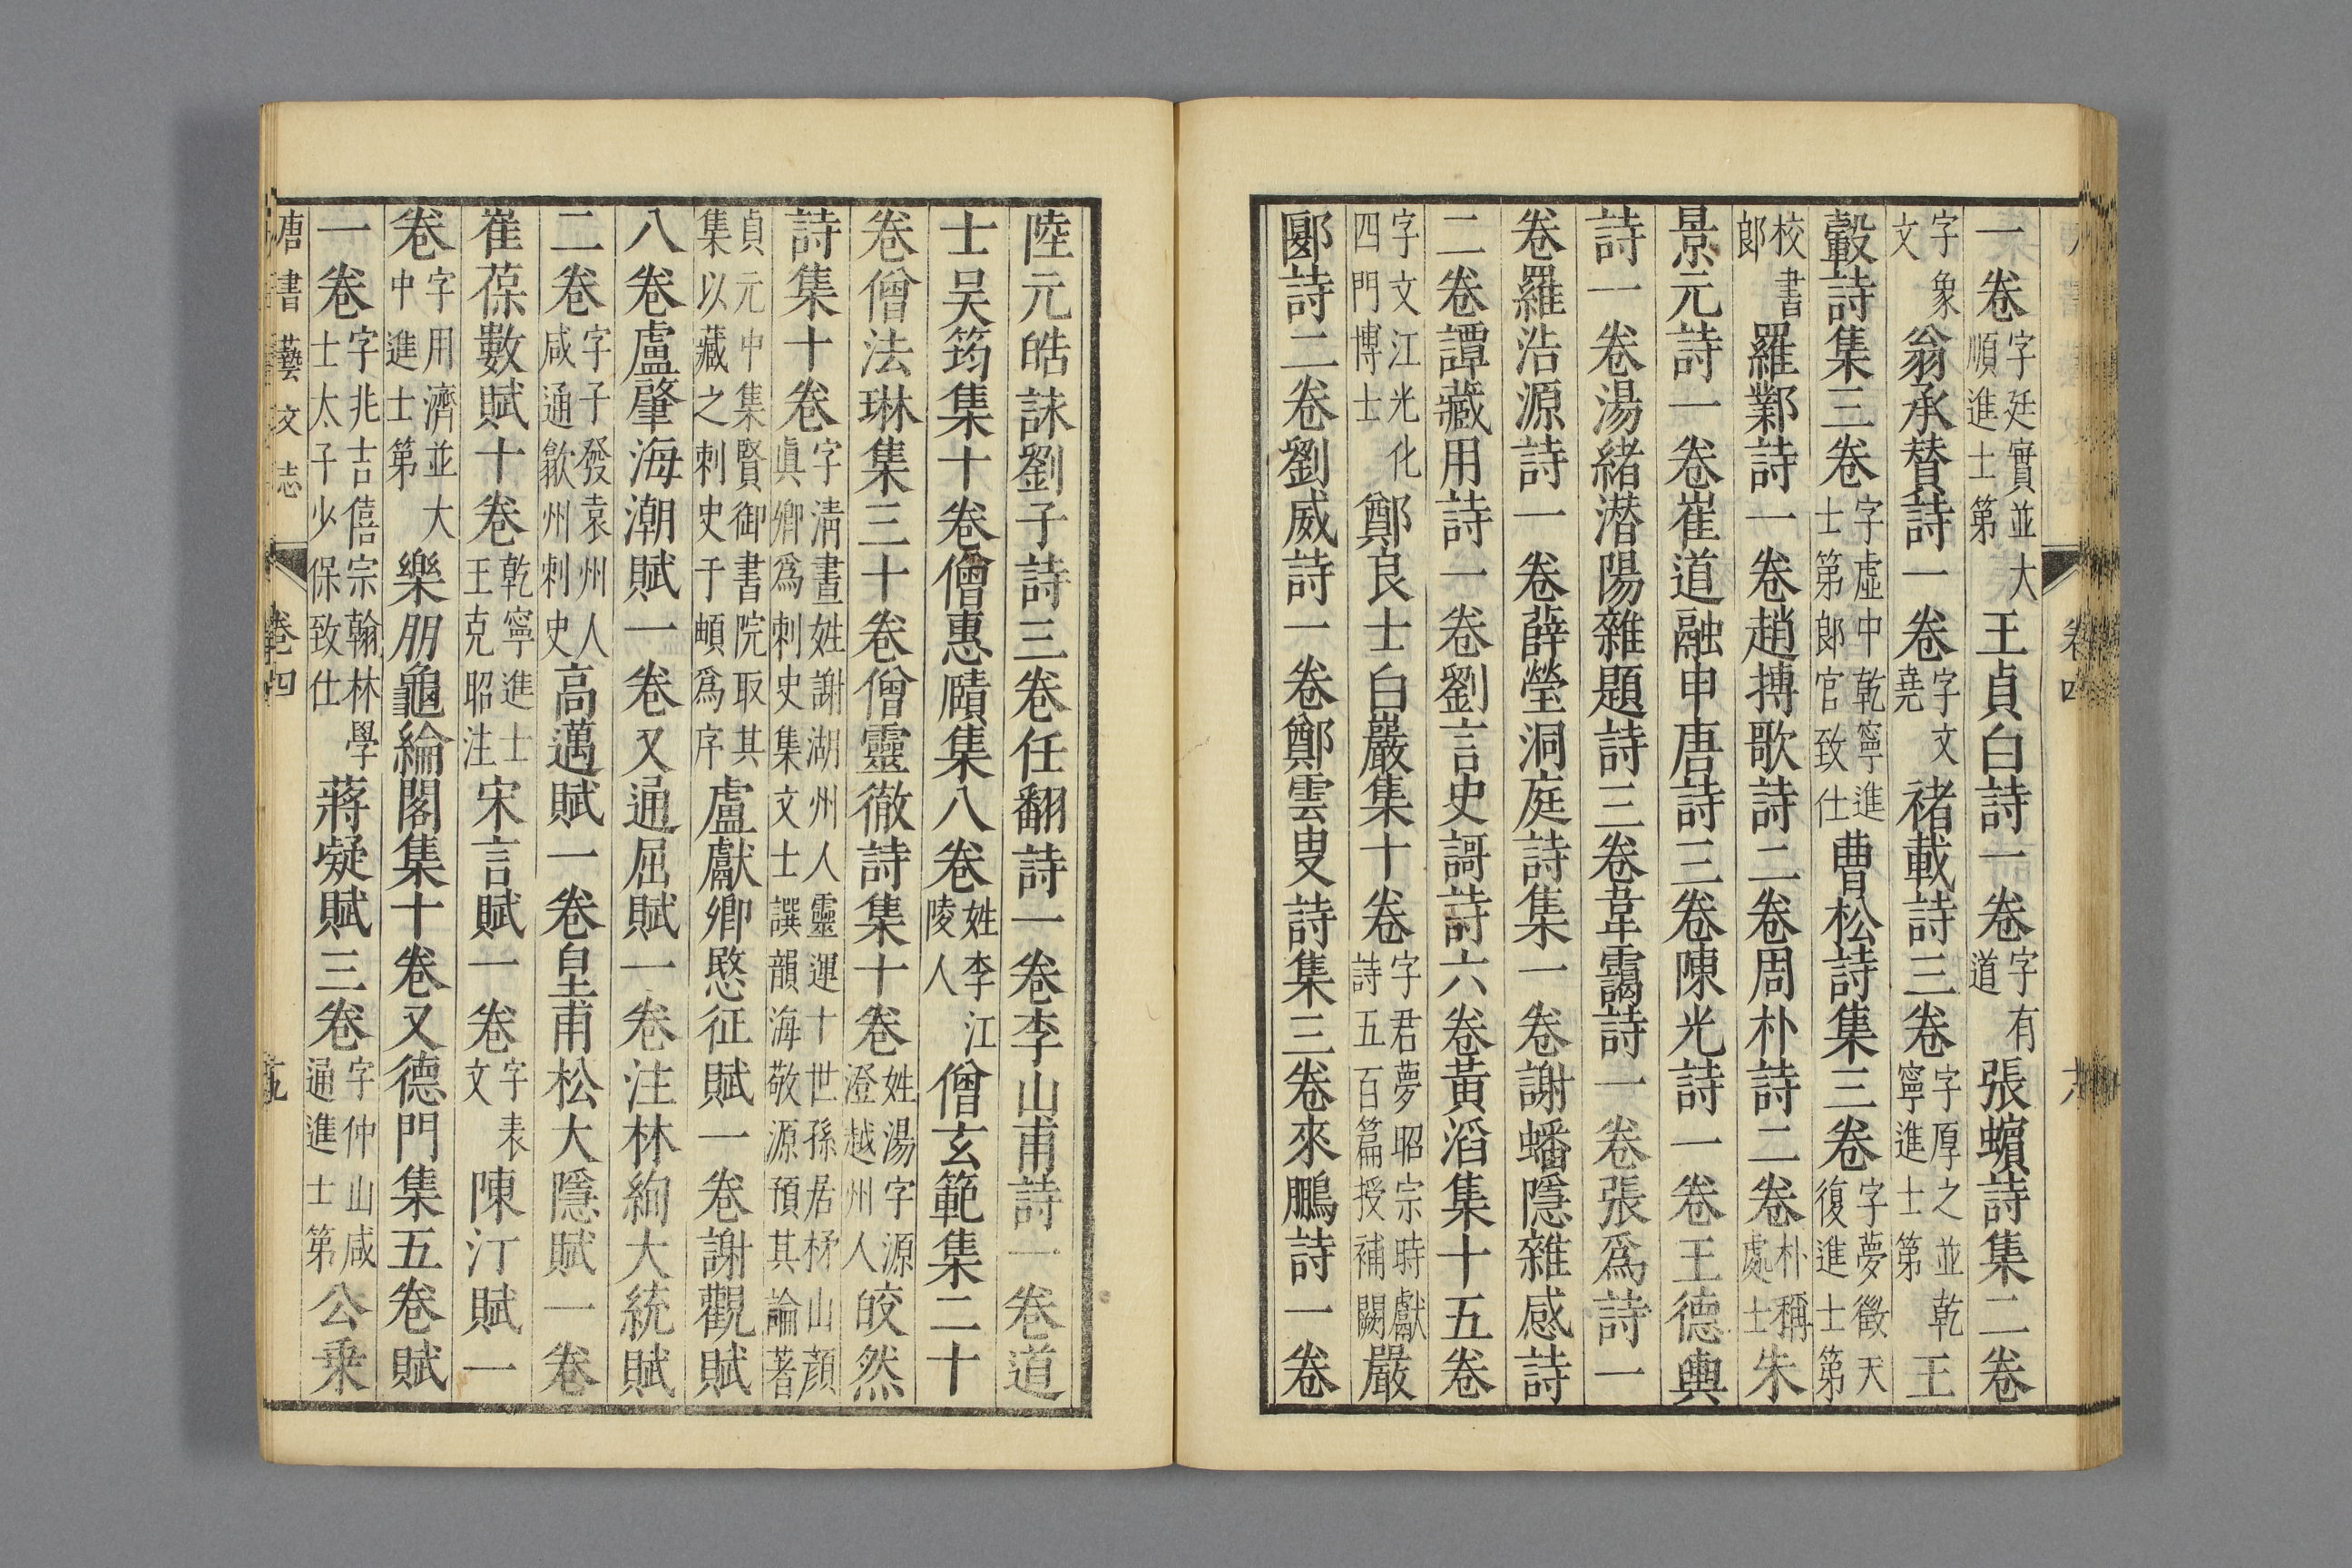 一卷字廷實並大順進士第王貞白詩一卷字有道張蠙詩集二卷
字象文翁承贊詩一卷字文堯褚載詩三卷字厚之並乾寧進士第王
轂詩集三卷字虛中乾寧進士第郎官致仕曹松詩集三卷字夢徵天復進士第
校書郎羅鄴詩一卷趙搏歌詩二卷周朴詩二卷朴稱處士朱
景元詩一卷崔道融申唐詩三卷陳光詩一卷王德輿
詩一卷湯緒潛陽雜題詩三卷韋靄詩一卷張爲詩一
卷羅浩源詩一卷薛瑩洞庭詩集一卷謝蟠隱雜感詩
二卷譚藏用詩一卷劉言史謌詩六卷黃滔集十五卷
字文江光化四門博士鄭良士白巖集十卷字君夢昭宗時獻詩五百篇授補闕嚴
郾詩二卷劉威詩一卷鄭雲叟詩集三卷來鵬詩一卷
陸元皓詠劉子詩三卷任翻詩一卷李山甫詩一卷道
士吳筠集十卷僧惠賾集八卷姓李江陵人僧玄範集二十
卷僧法琳集三十卷僧靈徹詩集十卷姓湯字源澄越州人皎然
詩集十卷字清晝姓謝湖州人靈運十世孫居杼山顏眞卿爲刺史集文士譔韻海敬源預其論著
貞元中集賢御書院取其集以藏之刺史于頔爲序盧獻卿愍征賦一卷謝觀賦
八卷盧肇海潮賦一卷又通屈賦一卷注林絢大統賦
二卷字子發袁州人咸通歙州刺史高邁賦一卷皇甫松大隱賦一卷
崔葆數賦十卷乾寧進士王克昭注宋言賦一卷字表文陳汀賦一
卷字用濟並大中進士第樂朋龜綸閣集十卷又德門集五卷賦
一卷字兆吉僖宗翰林學士太子少保致仕蔣凝賦三卷字仲山咸通進士第公乘
唐書藝文志 卷四 十九